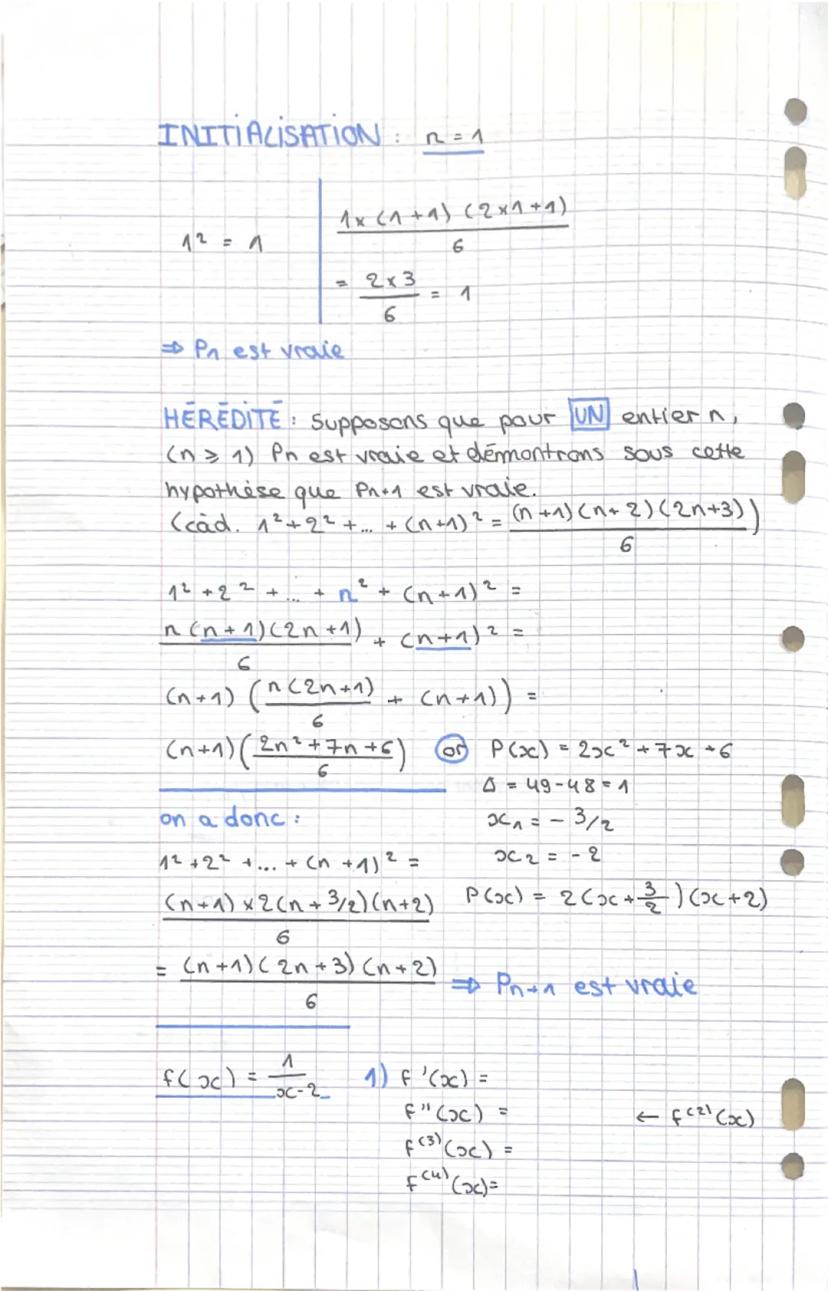 INITIALISATION : n = 1
1² = 1
1×(1+1)(2×1+1)/6
= 2×3/6 = 1
⇒ P₁ est vraie
HÉRÉDITÉ : Supposons que pour UN entier n,
(n ≥ 1) Pn est vraie et démontrons sous cette
hypothèse que Pn+1 est vraie.
(càd. 1² + 2² + ... + (n+1)² = (n+1)(n+2)(2n+3)/6)
1² + 2² + ... + n² + (n+1)² =
n(n+1)(2n+1)/6 + (n+1)² =
(n+1) (n(2n+1)/6 + (n+1)) =
(n+1)(2n²+7n+6/6) or P(x) = 2x² + 7x + 6
Δ = 49-48 = 1
x₁ = - 3/2
x₂ = - 2
P(x) = 2(x + 3/2)(x+2)
on a donc :
1² + 2² + ... + (n+1)² =
(n+1)×2(n+3/2)(n+2)/6
= (n+1)(2n+3)(n+2)/6 ⇒ Pn+1 est vraie
f(x) = 1/x-2 1) f'(x) =
f''(x) = ← f⁽²⁾(x)
f⁽³⁾(x) =
f⁽⁴⁾(x) =